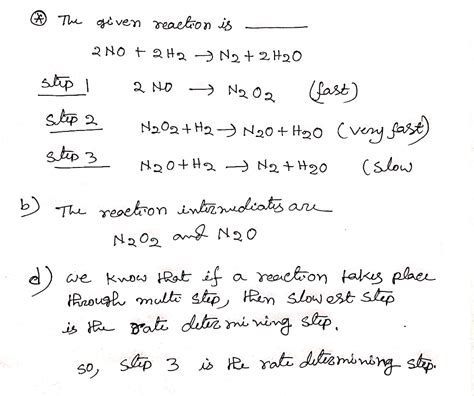 * The given reaction is ______
2NO + 2H2 → N2 + 2H2O
step 1 2 NO → N2O2 (fast)
step 2 N2O2+H2 → N2O+H2O (very fast)
step 3 N2O+H2 → N2+H2O (slow
b) The reaction intermediates are
N2O2 and N2O
d) we know that if a reaction takes place
through multi step, then slowest step
is the rate determining step.
so, step 3 is the rate determining step.